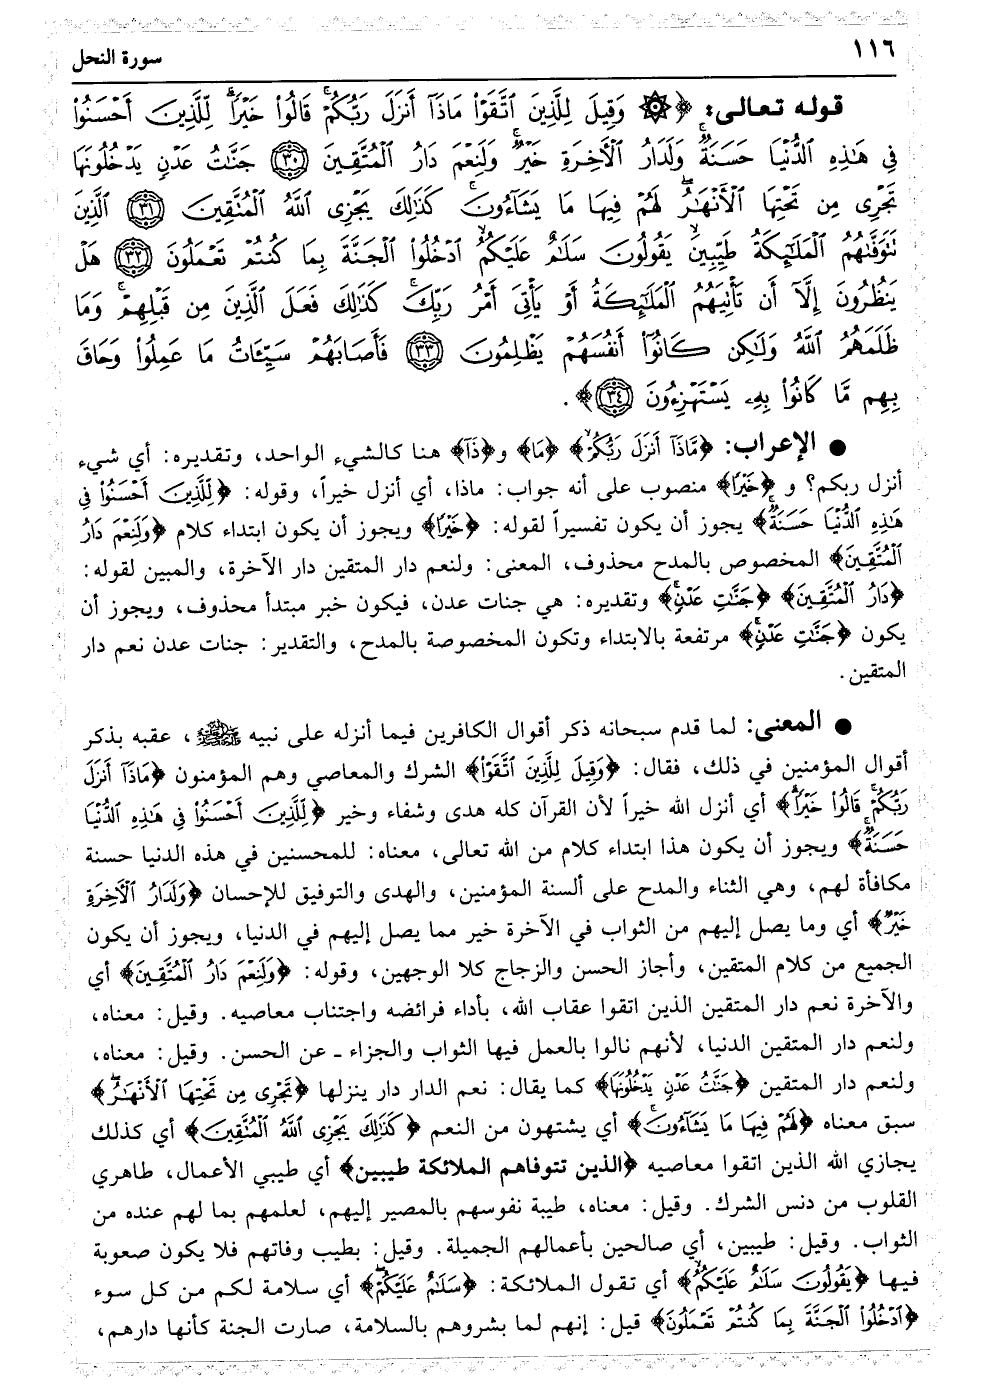 ١١٦ سورة النحل
قوله تعالى: ﴿۞ وَقِيلَ لِلَّذِينَ اتَّقَوْا مَاذَا أَنزَلَ رَبُّكُمْ ۚ قَالُوا خَيْرًا ۗ لِّلَّذِينَ أَحْسَنُوا
فِي هَٰذِهِ الدُّنْيَا حَسَنَةٌ ۚ وَلَدَارُ الْآخِرَةِ خَيْرٌ ۚ وَلَنِعْمَ دَارُ الْمُتَّقِينَ ۝٣٠ جَنَّاتُ عَدْنٍ يَدْخُلُونَهَا
تَجْرِي مِن تَحْتِهَا الْأَنْهَارُ ۖ لَهُمْ فِيهَا مَا يَشَاءُونَ ۚ كَذَٰلِكَ يَجْزِي اللَّهُ الْمُتَّقِينَ ۝٣١ الَّذِينَ
تَتَوَفَّاهُمُ الْمَلَائِكَةُ طَيِّبِينَ ۙ يَقُولُونَ سَلَامٌ عَلَيْكُمُ ادْخُلُوا الْجَنَّةَ بِمَا كُنتُمْ تَعْمَلُونَ ۝٣٢ هَلْ
يَنظُرُونَ إِلَّا أَن تَأْتِيَهُمُ الْمَلَائِكَةُ أَوْ يَأْتِيَ أَمْرُ رَبِّكَ ۚ كَذَٰلِكَ فَعَلَ الَّذِينَ مِن قَبْلِهِمْ ۚ وَمَا
ظَلَمَهُمُ اللَّهُ وَلَٰكِن كَانُوا أَنفُسَهُمْ يَظْلِمُونَ ۝٣٣ فَأَصَابَهُمْ سَيِّئَاتُ مَا عَمِلُوا وَحَاقَ
بِهِم مَّا كَانُوا بِهِ يَسْتَهْزِءُونَ ۝٣٤﴾.
● الإعراب: ﴿مَّاذَا أَنزَلَ رَبُّكُمْ﴾ ﴿مَا﴾ و﴿ذَا﴾ هنا كالشيء الواحد، وتقديره: أي شيء
أنزل ربكم؟ و ﴿خَيْرًا﴾ منصوب على أنه جواب: ماذا، أي أنزل خيراً، وقوله: ﴿لِلَّذِينَ أَحْسَنُوا فِي
هَٰذِهِ الدُّنْيَا حَسَنَةٌ﴾ يجوز أن يكون تفسيراً لقوله: ﴿خَيْرًا﴾ ويجوز أن يكون ابتداء كلام ﴿وَلَنِعْمَ دَارُ
الْمُتَّقِينَ﴾ المخصوص بالمدح محذوف، المعنى: ولنعم دار المتقين دار الآخرة، والمبين لقوله:
﴿دَارُ الْمُتَّقِينَ﴾ ﴿جَنَّاتِ عَدْنٍ﴾ وتقديره: هي جنات عدن، فيكون خبر مبتدأ محذوف، ويجوز أن
يكون ﴿جَنَّاتِ عَدْنٍ﴾ مرتفعة بالابتداء وتكون المخصوصة بالمدح، والتقدير: جنات عدن نعم دار
المتقين.
● المعنى: لما قدم سبحانه ذكر أقوال الكافرين فيما أنزله على نبيه ﷺ، عقبه بذكر
أقوال المؤمنين في ذلك، فقال: ﴿وَقِيلَ لِلَّذِينَ اتَّقَوْا﴾ الشرك والمعاصي وهم المؤمنون ﴿مَاذَا أَنزَلَ
رَبُّكُمْ ۚ قَالُوا خَيْرًا﴾ أي أنزل الله خيراً لأن القرآن كله هدى وشفاء وخير ﴿لِلَّذِينَ أَحْسَنُوا فِي هَٰذِهِ الدُّنْيَا
حَسَنَةٌ﴾ ويجوز أن يكون هذا ابتداء كلام من الله تعالى، معناه: للمحسنين في هذه الدنيا حسنة
مكافأة لهم، وهي الثناء والمدح على ألسنة المؤمنين، والهدى والتوفيق للإحسان ﴿وَلَدَارُ الْآخِرَةِ
خَيْرٌ﴾ أي وما يصل إليهم من الثواب في الآخرة خير مما يصل إليهم في الدنيا، ويجوز أن يكون
الجميع من كلام المتقين، وأجاز الحسن والزجاج كلا الوجهين، وقوله: ﴿وَلَنِعْمَ دَارُ الْمُتَّقِينَ﴾ أي
والآخرة نعم دار المتقين الذين اتقوا عقاب الله، بأداء فرائضه واجتناب معاصيه. وقيل: معناه،
ولنعم دار المتقين الدنيا، لأنهم نالوا بالعمل فيها الثواب والجزاء ـ عن الحسن. وقيل: معناه،
ولنعم دار المتقين ﴿جَنَّاتُ عَدْنٍ يَدْخُلُونَهَا﴾ كما يقال: نعم الدار دار ينزلها ﴿تَجْرِي مِن تَحْتِهَا الْأَنْهَارُ﴾
سبق معناه ﴿لَهُمْ فِيهَا مَا يَشَاءُونَ﴾ أي يشتهون من النعم ﴿كَذَٰلِكَ يَجْزِي اللَّهُ الْمُتَّقِينَ﴾ أي كذلك
يجازي الله الذين اتقوا معاصيه ﴿الذين تتوفاهم الملائكة طيبين﴾ أي طيبي الأعمال، طاهري
القلوب من دنس الشرك. وقيل: معناه، طيبة نفوسهم بالمصير إليهم، لعلمهم بما لهم عنده من
الثواب. وقيل: طيبين، أي صالحين بأعمالهم الجميلة. وقيل: بطيب وفاتهم فلا يكون صعوبة
فيها ﴿يَقُولُونَ سَلَامٌ عَلَيْكُمُ﴾ أي تقول الملائكة: ﴿سَلَامٌ عَلَيْكُمْ﴾ أي سلامة لكم من كل سوء
﴿ادْخُلُوا الْجَنَّةَ بِمَا كُنتُمْ تَعْمَلُونَ﴾ قيل: إنهم لما بشروهم بالسلامة، صارت الجنة كأنها دارهم،